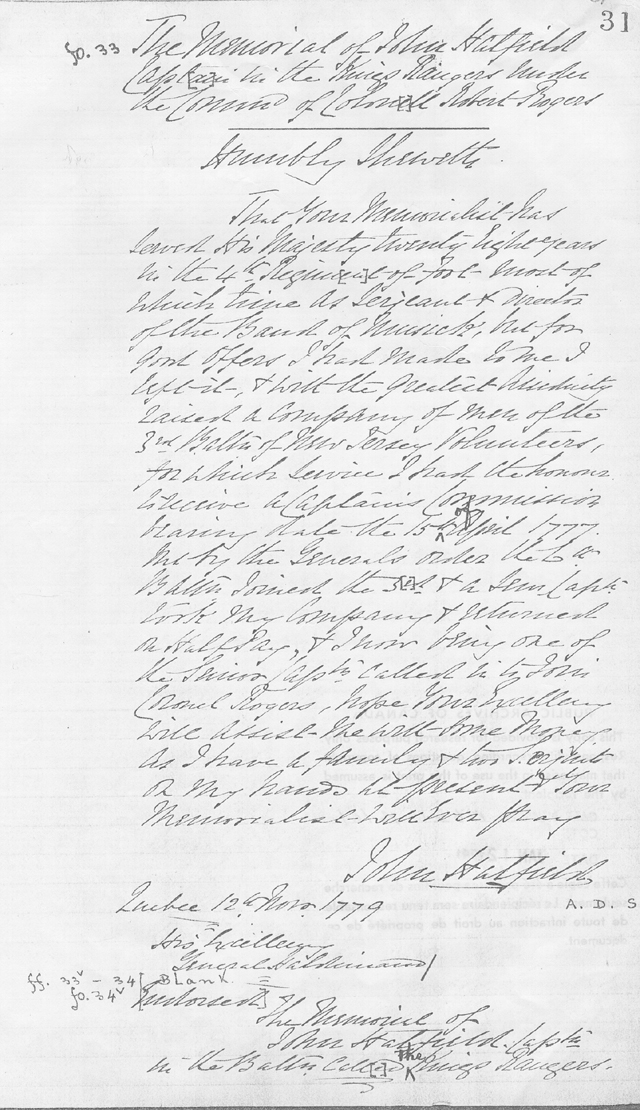 31
fo. 33 The Memorial of John Hatfield
Captain in the Kings Rangers Under
the Comm'd of Colonell Robert Rogers
Humbly Sheweth
That Your Memorialist has
Served His Majesty twenty Eight Years
in the 4th Regiment of foot most of
which time As Sergeant & Director
of the Band of Musick, but for
Good Offers I had Made to me I
left it, & with the Greatest Assiduity
raised a Company of Men of the
3rd Battn of New Jersey Volunteers,
for which Service I had the honour
to receive a Captains Commission
bearing date the 15th of April 1777.
but by the Generals order the 6th
Battn Joined the 3rd & a Senr Captn
took My Company & returned
on Half Pay, & I now being one of
the Senior Captns Called in to Join
Colonel Rogers, hope Your Excellency
will Assist Me with Some Money
As I have a family & two
on My hands at present & Your
Memorialist will Ever pray
John Hatfield
Quebec 12th Novr 1779
A. D. S
His Excellency
General Haldimand
ff. 33v - 34 [BLANK
fo. 34v Endorsed]
The Memorial of
John Hatfield. Captn
in the Battn Called the Kings Rangers.